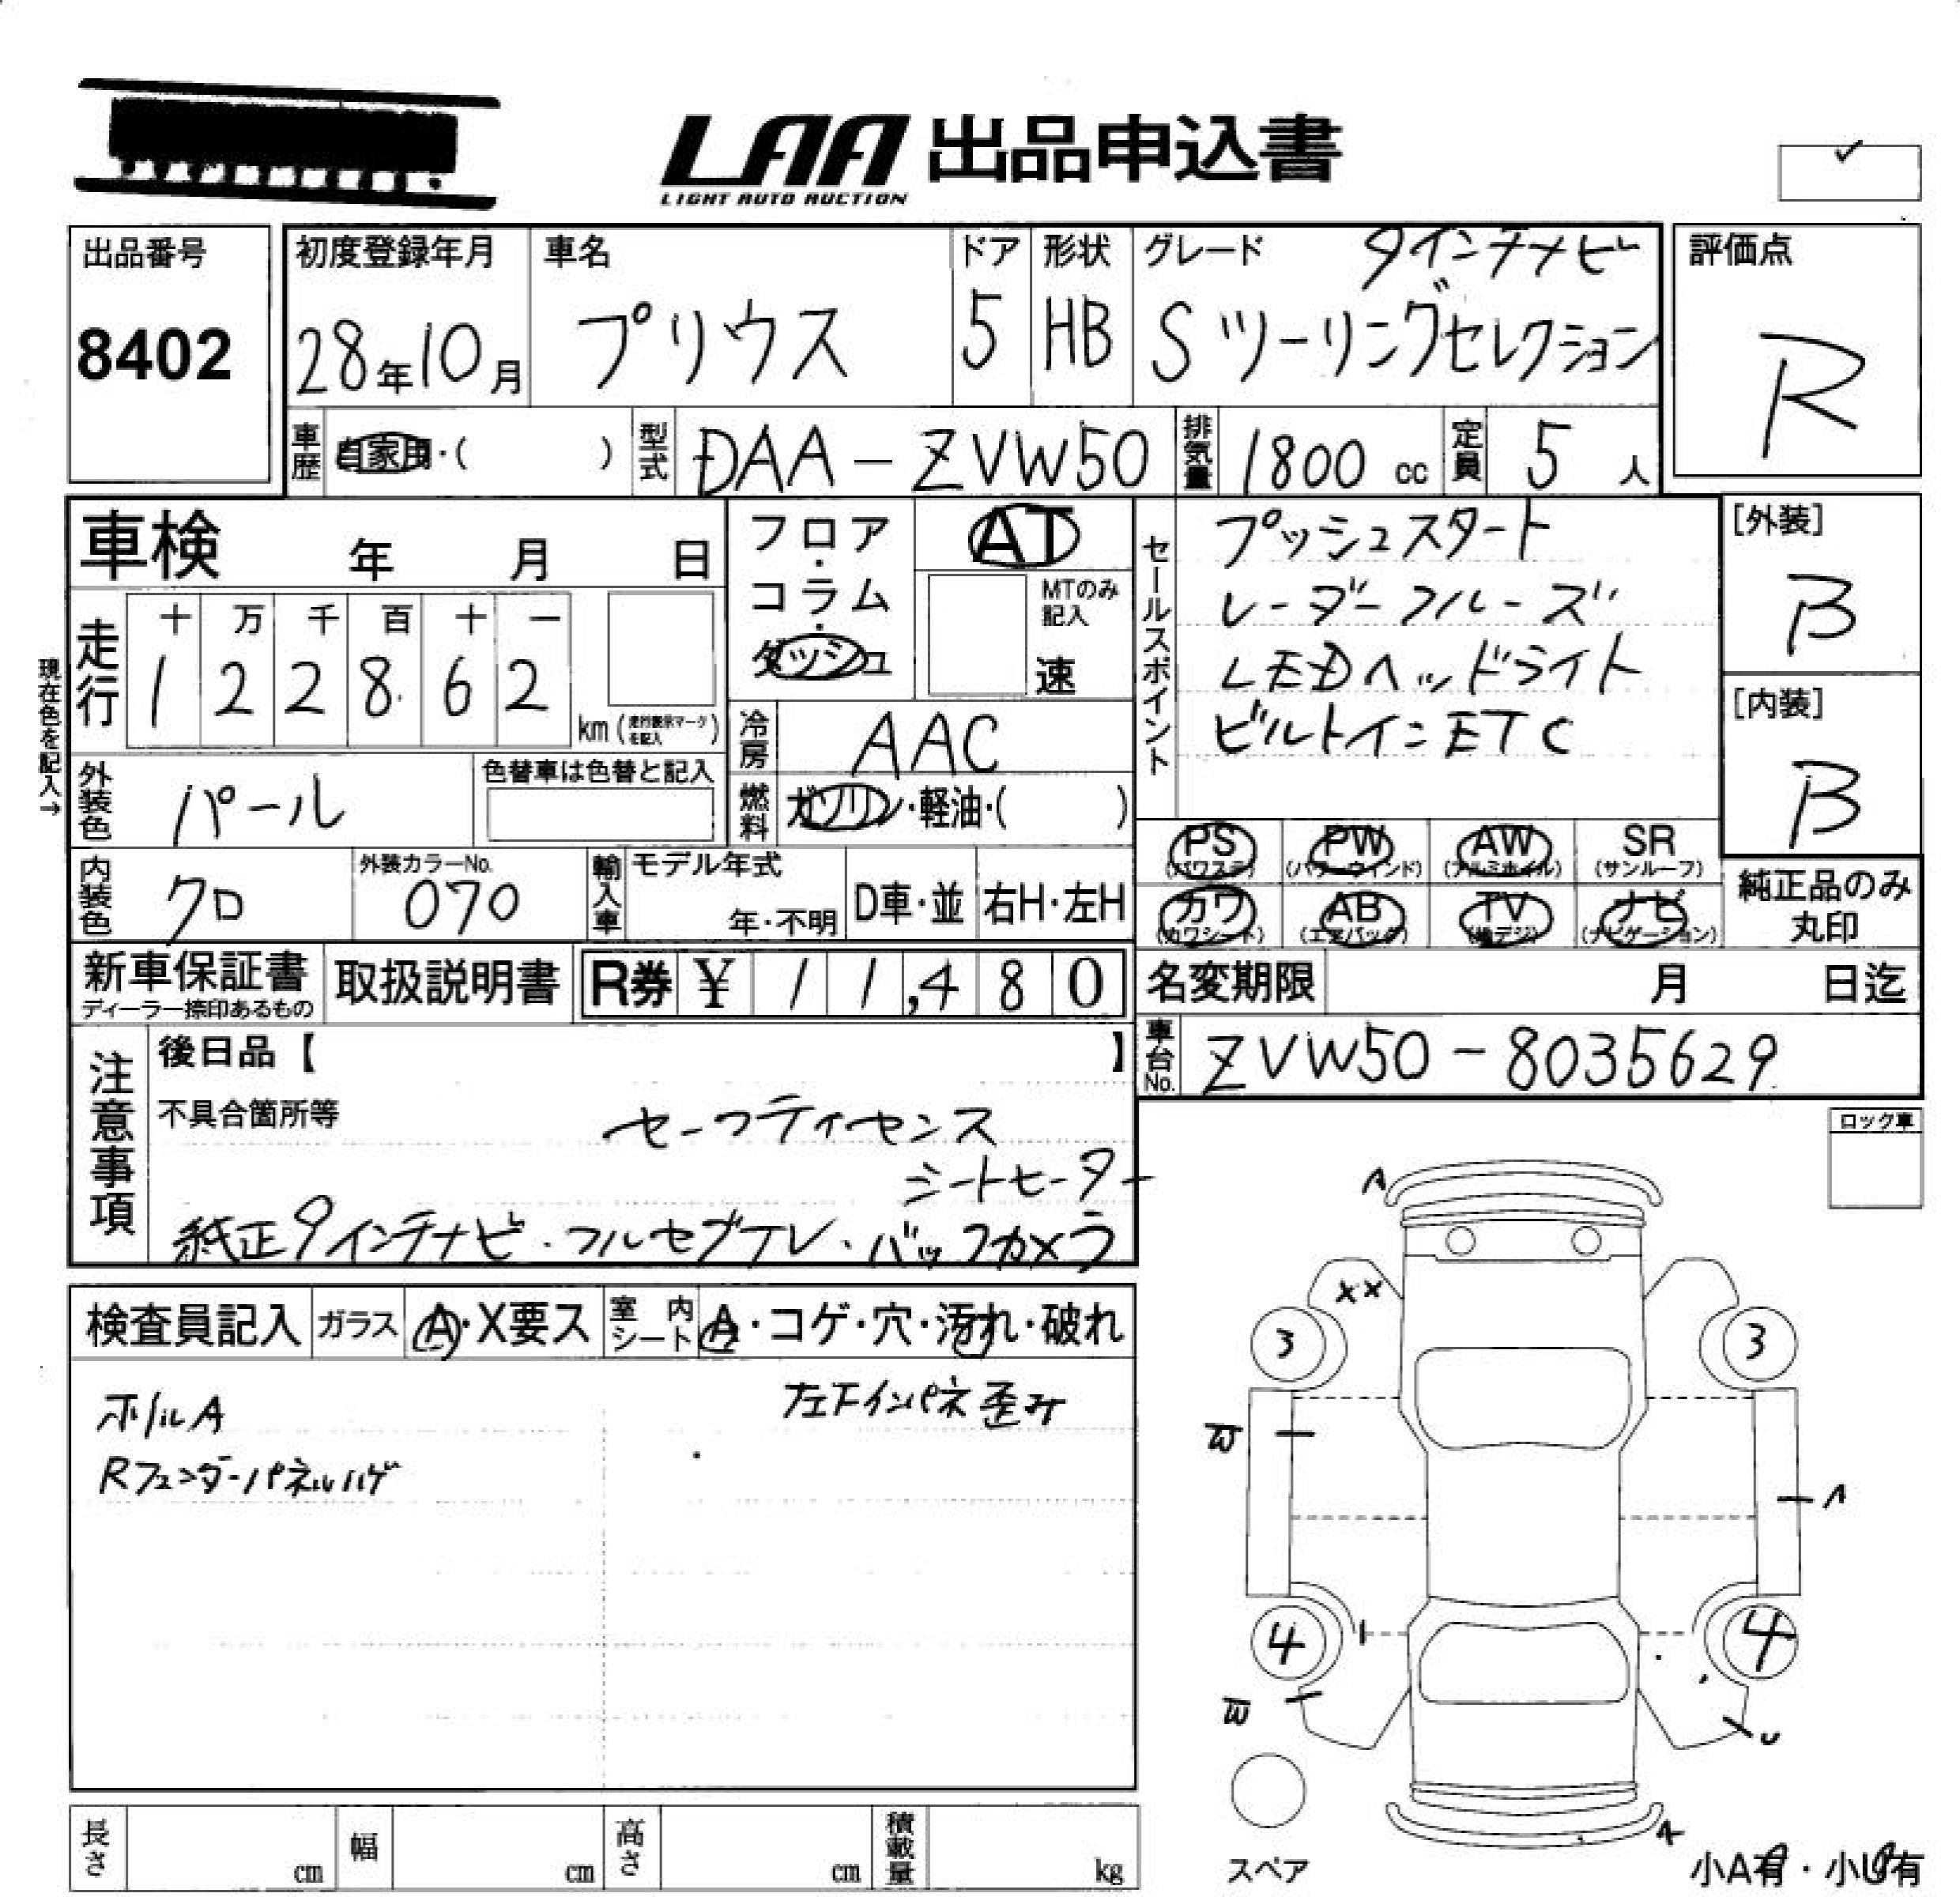 LAA 出品申込書
LIGHT AUTO AUCTION
出品番号
8402
初度登録年月
28年10月
車名
プリウス
ドア
5
形状
HB
グレード
9インチナビ
Sツーリングセレクション
評価点
R
車歴
自家用・( )
型式
DAA-ZVW50
排気量
1800 cc
定員
5 人
車検 年 月 日
フロア・コラム・ダッシュ
AT
MTのみ記入
速
セールスポイント
プッシュスタート
レーダークルーズ
LEDヘッドライト
ビルトインETC
[外装]
B
[内装]
B
現在色を記入→
走行
十 万 千 百 十 一
1 2 2 8 6 2
km (走行表示マークを記入)
冷房
AAC
外装色
パール
色替車は色替と記入
燃料
ガソリン・軽油・( )
内装色
クロ
外装カラーNo.
070
輸入車
モデル年式
年・不明
D車・並
右H・左H
PS (パワステ)
PW (パワーウィンド)
AW (アルミホイル)
SR (サンルーフ)
カワ (カワシート)
AB (エアバック)
TV (地デジ)
ナビ (ナビゲーション)
純正品のみ丸印
新車保証書
ディーラー捺印あるもの
取扱説明書
R券 ¥ 11,480
名変期限 月 日迄
車台No.
ZVW50-8035629
注意事項
後日品【 】
不具合箇所等
セーフティセンス
シートヒーター
純正9インチナビ・フルセグTV・バックカメラ
ロック車
検査員記入
ガラス
A・X要ス
室内シート
A・コゲ・穴・汚れ・破れ
ホイルA
Rフェンダーパネルハゲ
左下インパネ歪み
A
××
3
3
W
A
4
4
W
U
A
スペア
小A有・小U有
長さ cm
幅 cm
高さ cm
積載量 kg